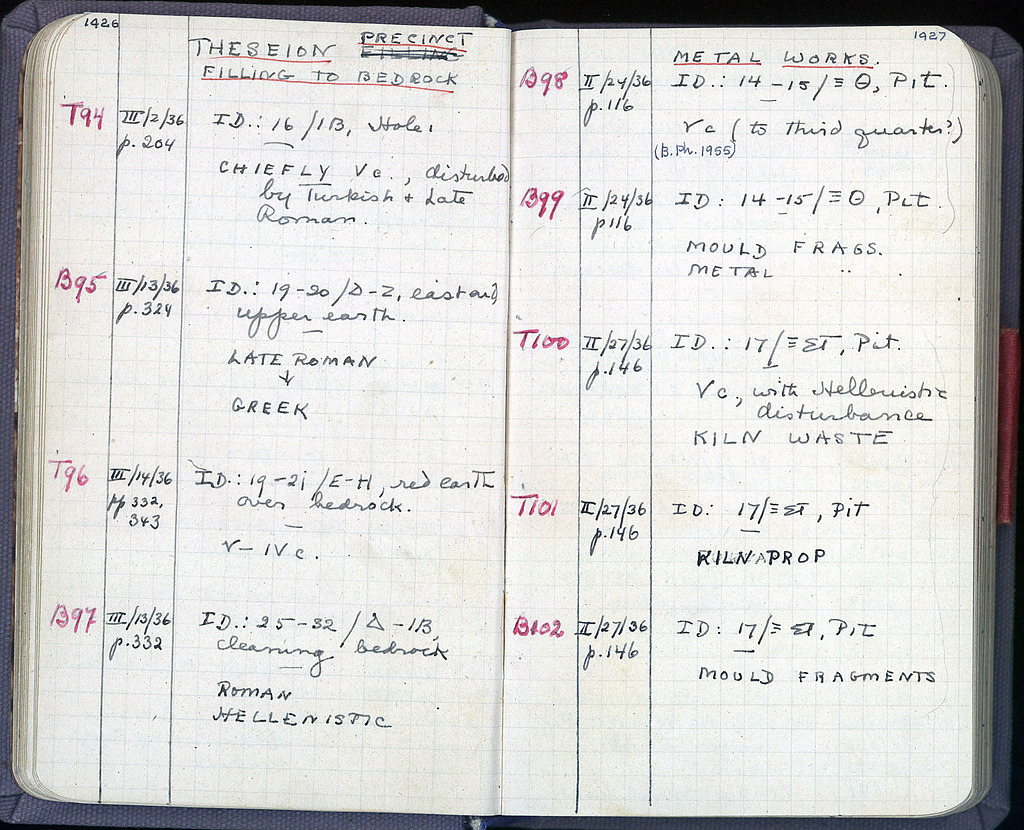 1426
THESEION PRECINCT
FILLING TO BEDROCK
T94 III/2/36 ID.: 16/IB, Hole 1
p. 204
CHIEFLY Vc., disturbed
by Turkish + Late
Roman.
B95 III/13/36 ID.: 19-20/Δ-Z, east end,
p. 324 upper earth.
LATE ROMAN
↓
GREEK
T96 III/14/36 ID.: 19-21/E-H, red earth
pp 332, over bedrock.
343
V-IVc.
B97 III/13/36 ID.: 25-32/Δ-IB,
p.332 cleaning bedrock
ROMAN
HELLENISTIC
1427
METAL WORKS.
B98 II/24/36 ID.: 14-15/Ξ Θ, Pit.
p.116
Vc (to third quarter?)
(B.Ph. 1955)
B99 II/24/36 ID: 14-15/Ξ Θ, Pit.
p116
MOULD FRAGS.
METAL "
T100 II/27/36 ID.: 17/Ξ ΣΤ, Pit.
p.146
Vc, with Hellenistic
disturbance
KILN WASTE
T101 II/27/36 ID: 17/Ξ ΣΤ, Pit
p.146
KILN PROP
B102 II/27/36 ID: 17/Ξ ΣΤ, Pit
p.146
MOULD FRAGMENTS